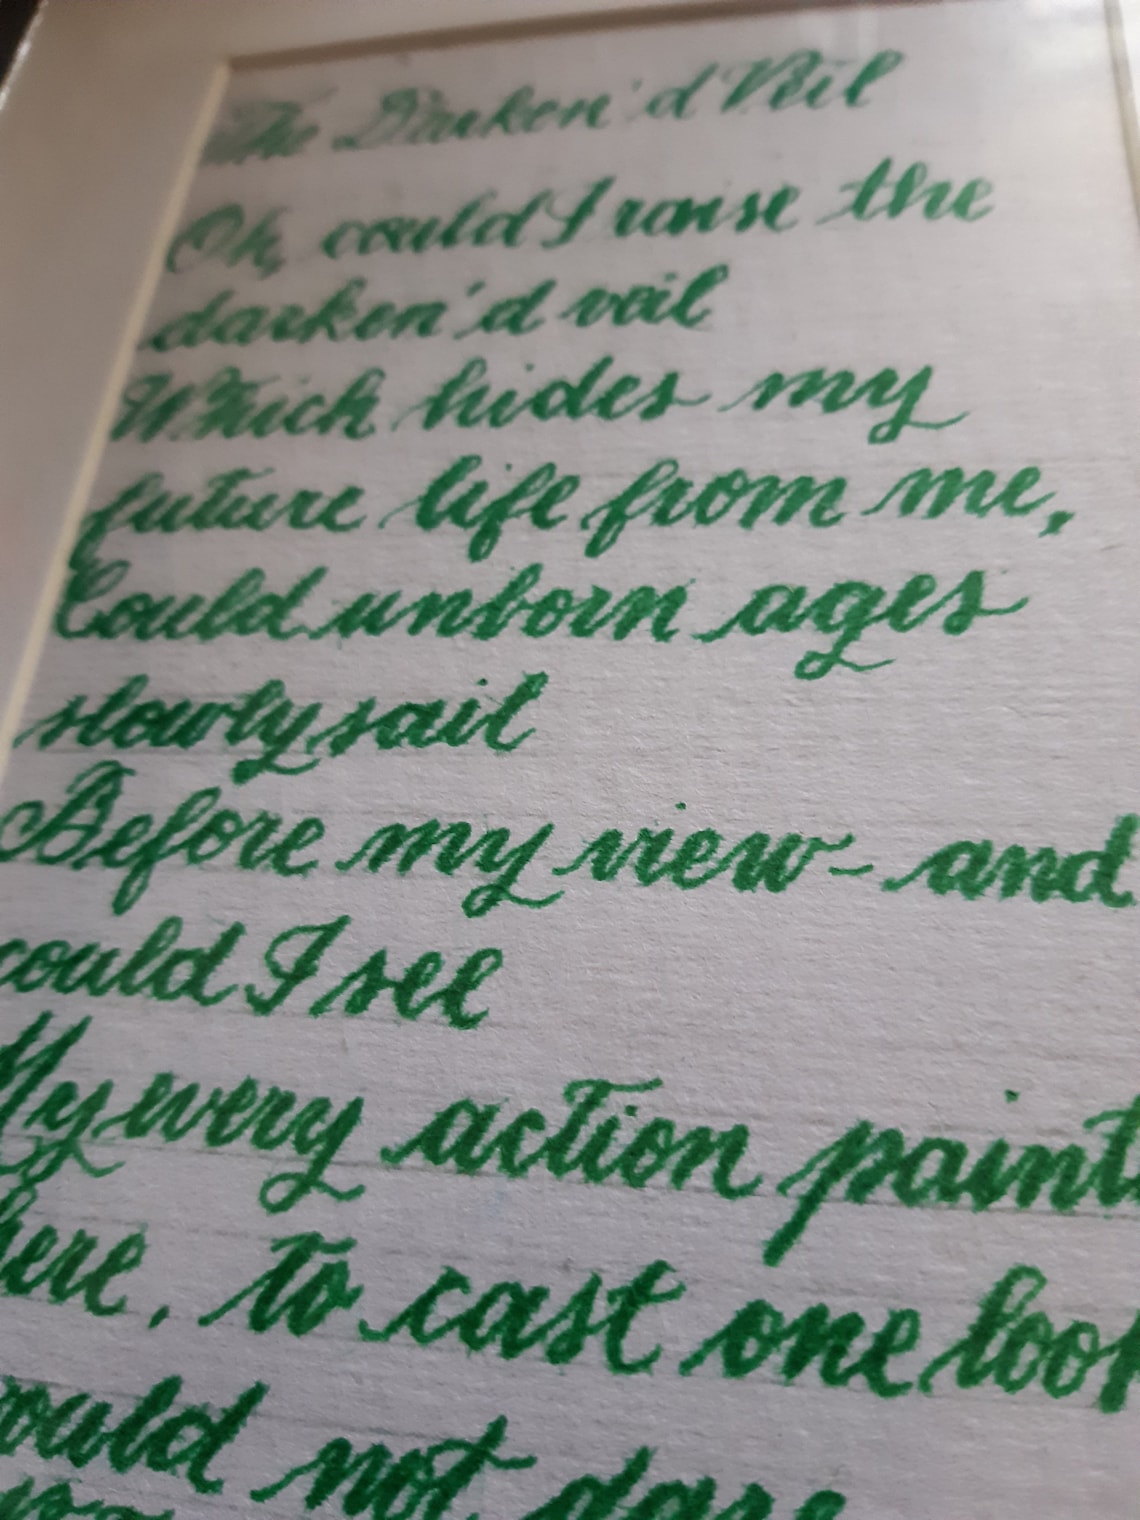 The Darken'd Veil
Oh, could I raise the
darken'd veil
Which hides my
future life from me,
Could unborn ages
slowly sail
Before my view- and
could I see
My every action paint
here, to cast one look
would not dare